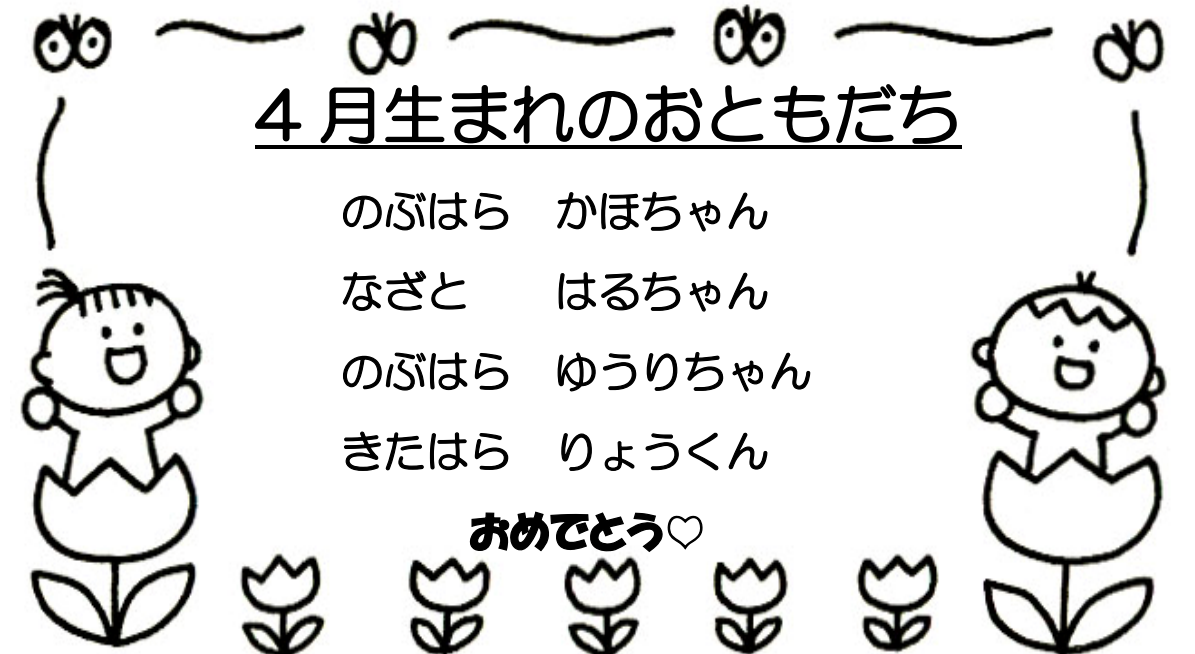 ４月生まれのおともだち
のぶはら　かほちゃん
なざと　　はるちゃん
のぶはら　ゆうりちゃん
きたはら　りょうくん
おめでとう♡